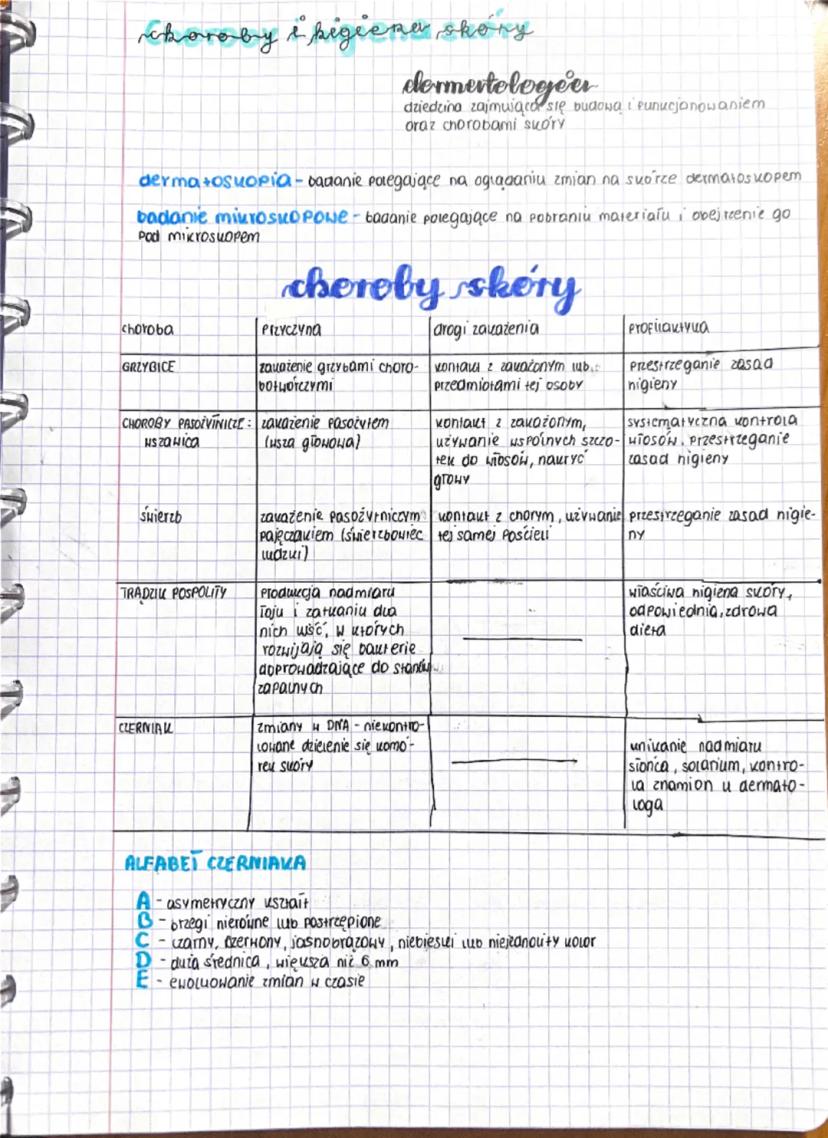 choroby i higiena skóry
dermatologia
dziedzina zajmująca się budową i funkcjonowaniem
oraz chorobami skóry
dermatoskopia - badanie polegające na oglądaniu zmian na skórze dermatoskopem
badanie mikroskopowe - badanie polegające na pobraniu materiału i obejrzenie go
pod mikroskopem
choroby skóry
choroba przyczyna drogi zakażenia profilaktyka
GRZYBICE
zakażenie grzybami choro-
botwórczymi
kontakt z zakażonym lub
przedmiotami tej osoby
przestrzeganie zasad
higieny
CHOROBY PASOŻYTNICZE:
wszawica
zakażenie pasożytem
(wsza głowowa)
kontakt z zakażonym,
używanie wspólnych szczo-
tek do włosów, nakryć
głowy
systematyczna kontrola
włosów, przestrzeganie
zasad higieny
świerzb
zakażenie pasożytniczym
pajęczakiem (świerzbowiec
ludzki)
kontakt z chorym, używanie
tej samej pościeli
przestrzeganie zasad higie-
ny
TRĄDZIK POSPOLITY
produkcja nadmiaru
łoju i zatkaniu dla
nich ujść, w których
rozwijają się bakterie
doprowadzające do stanów
zapalnych
właściwa higiena skóry,
odpowiednia, zdrowa
dieta
CZERNIAK
zmiany w DNA - niekontro-
lowane dzielenie się komó-
rek skóry
unikanie nadmiaru
słońca, solarium, kontro-
la znamion u dermato-
loga
ALFABET CZERNIAKA
A - asymetryczny kształt
B - brzegi nierówne lub postrzępione
C - czarny, czerwony, jasnobrązowy, niebieski lub niejednolity kolor
D - duża średnica, większa niż 6 mm
E - ewoluowanie zmian w czasie